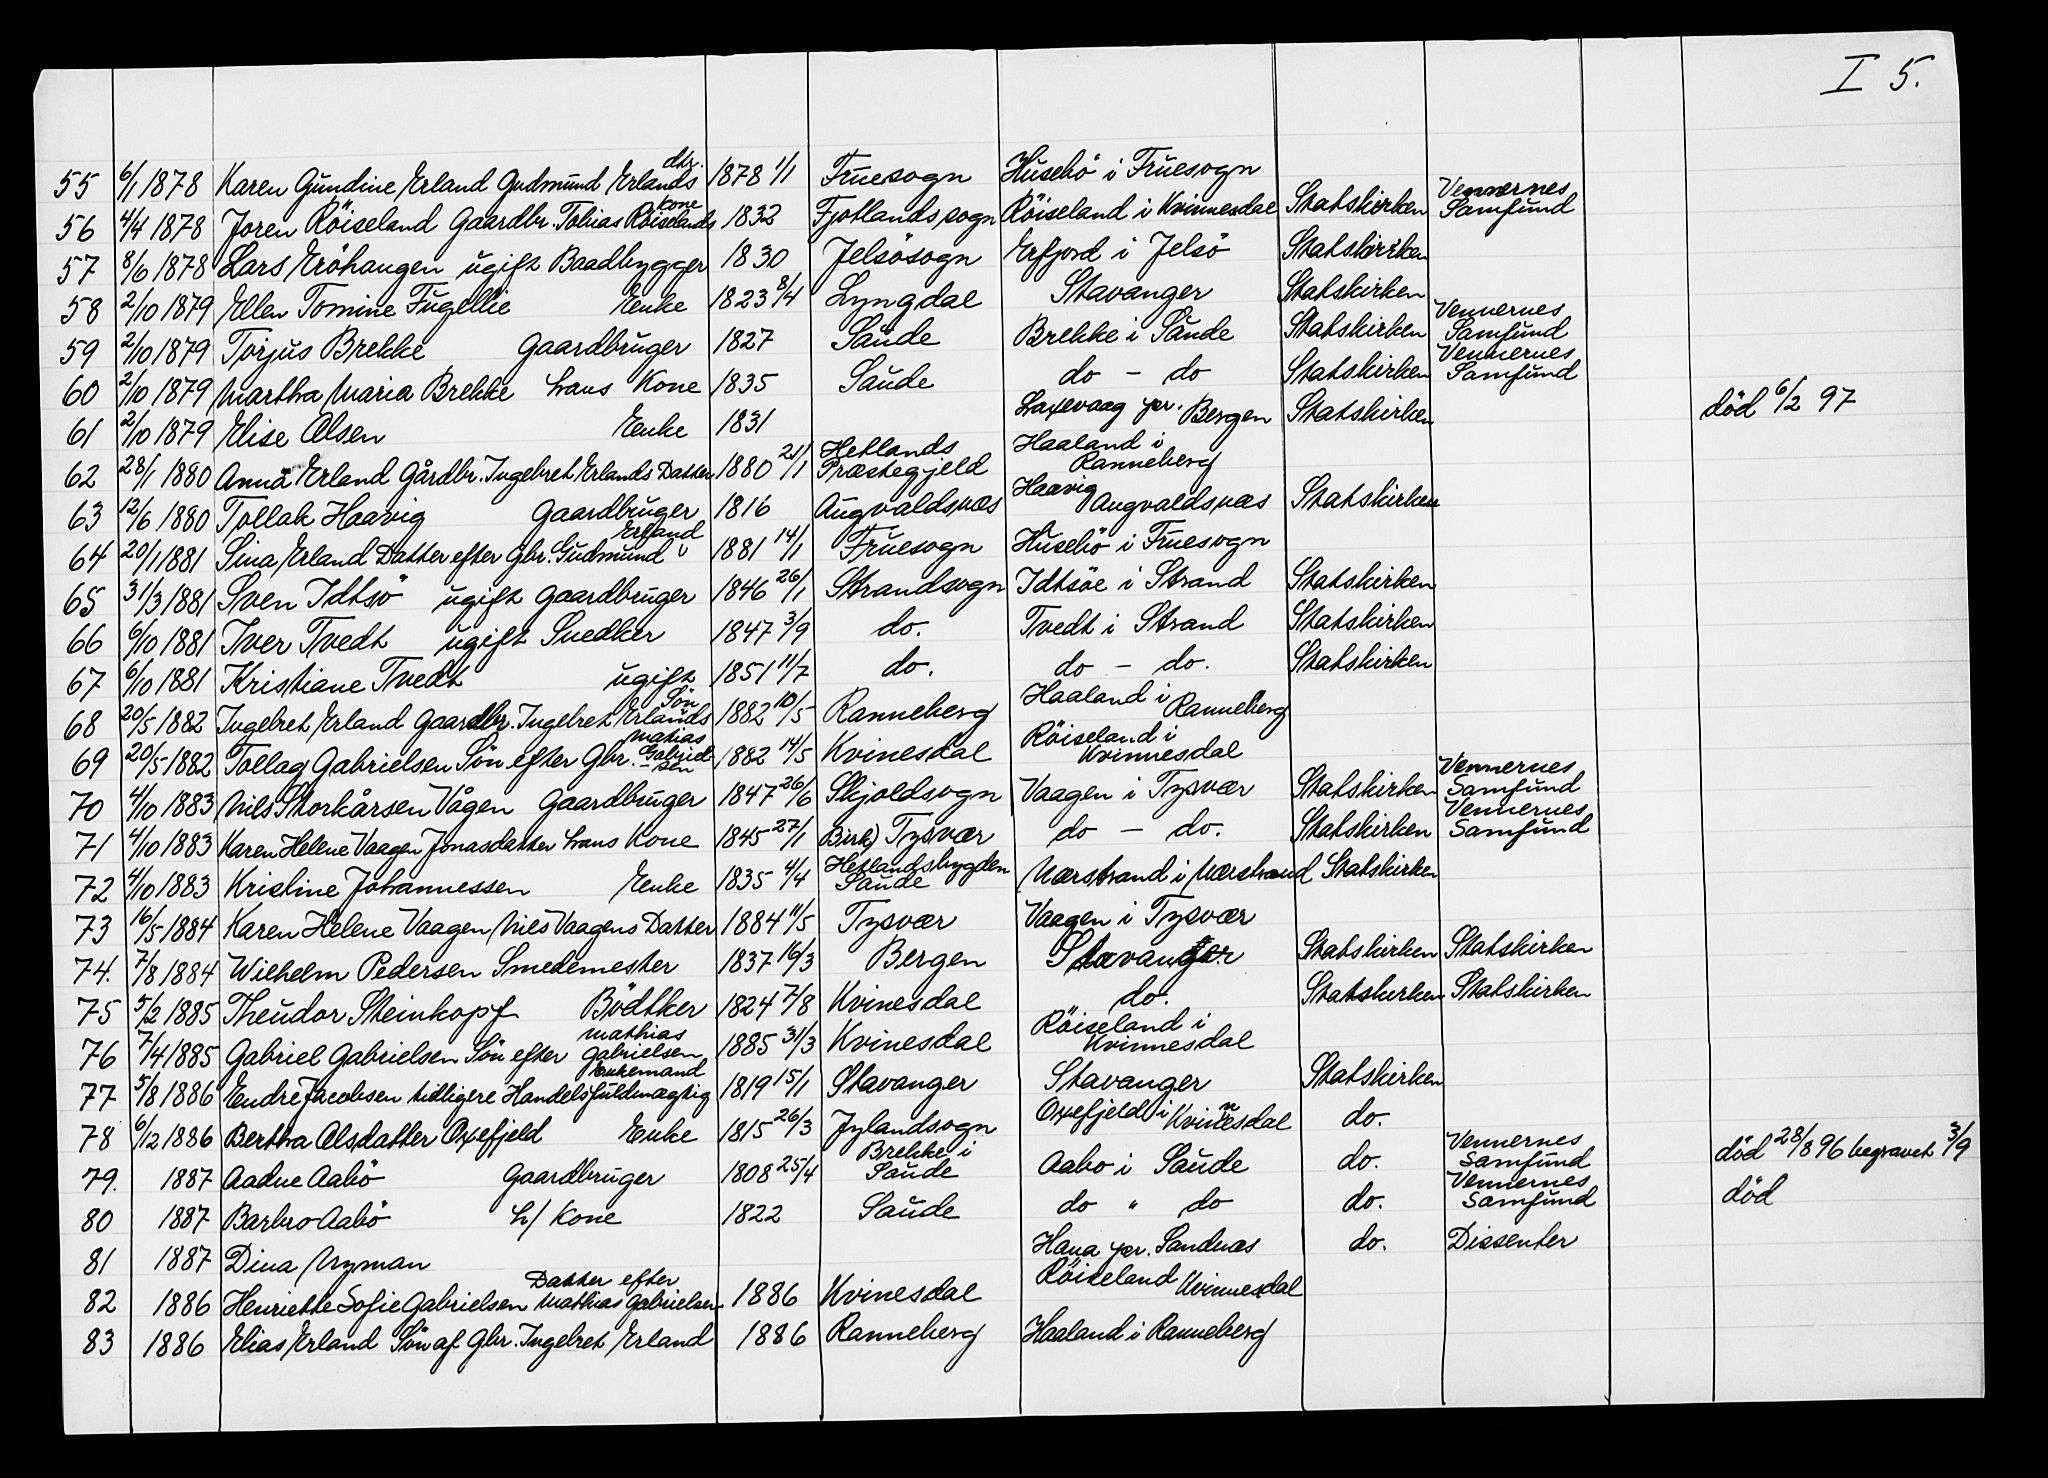 I 5.
55 6/1 1878 Karen Gundine Erland Gudmund Erlands dtr. 1878 1/1 Fruesogn Husebö i Fruesogn
56 4/4 1878 Joren Röiseland Gaardbr. Tobias Röiselands kone 1832 Fjotlands sogn Röiseland i Kvinnesdal Statskirken Vennernes Samfund
57 8/6 1878 Lars Eröhaugen ugift Baadbygger 1830 Jelsösogn Erfjord i Jelsö Statskirken
58 2/10 1879 Ellen Tomine Fugellie Enke 1823 8/4 Lyngdal Stavanger Statskirken
59 2/10 1879 Torjus Brekke Gaardbruger 1827 Saude Brekke i Saude Statskirken Vennernes Samfund
60 2/10 1879 Martha Maria Brekke hans Kone 1835 Saude do - do Statskirken Vennernes Samfund
61 2/10 1879 Elise Olsen Enke 1831 Laxevaag pr. Bergen Statskirken död 6/2 97
62 28/1 1880 Anna Erland Gårdbr. Ingebret Erlands Datter 1880 21/1 Hetlands Præstegjeld Haaland i Ranneberg
63 12/6 1880 Tollak Haavig Gaardbruger 1816 Augvaldsnæs Haavig Augvaldsnæs Statskirken
64 20/1 1881 Sina Erland Datter efter Gbr. Gudmund Erland 1881 14/1 Fruesogn Husebö i Fruesogn
65 31/3 1881 Sven Idtsö ugift Gaardbruger 1846 26/1 Strandsogn Idtsöe i Strand Statskirken
66 6/10 1881 Iver Tvedt ugift Snedker 1847 3/9 do. Tvedt i Strand Statskirken
67 6/10 1881 Kristiane Tvedt ugift 1851 11/7 do. do - do. Statskirken
68 20/5 1882 Ingebret Erland Gaardbr. Ingebret Erlands Sön 1882 10/5 Ranneberg Haaland i Ranneberg
69 20/5 1882 Tollag Gabrielsen Sön efter Gbr. Matias Gabriel-sen 1882 14/5 Kvinesdal Röiseland i Kvinnesdal
70 4/10 1883 Nils Storkårsen Vågen Gaardbruger 1847 26/6 Skjoldsogn Vaagen i Tysvær Statskirken Vennernes Samfund
71 4/10 1883 Karen Helene Vaagen Jonasdatter hans Kone 1845 27/1 Birk) Tysvær do - do. Statskirken Vennernes Samfund
72 4/10 1883 Kristine Johannessen Enke 1835 4/4 Hetlandsbygden Saude Narstrand i Narstrand Statskirken
73 16/5 1884 Karen Helene Vaagen Nils Vaagens Datter 1884 11/5 Tysvær Vaagen i Tysvær
74. 7/8 1884 Wilhelm Pedersen Smedemester 1837 16/3 Bergen Stavanger Statskirken Statskirken
75 5/2 1885 Theudor Steinkopf Bödtker 1824 7/8 Kvinesdal do. Statskirken Statskirken
76 7/4 1885 Gabriel Gabrielsen Sön efter Mathias Gabrielsen 1885 31/3 Kvinesdal Röiseland i Kvinnesdal
77 5/8 1886 Endre Jacobsen tidligere Handelsfuldmægtig Enkemand 1819 15/1 Stavanger Stavanger Statskirken
78 6/12 1886 Bertha Olsdatter Oxefjeld Enke 1815 26/3 Jylandsogn Oxefjeld i Kvinnesdal do.
79. 1887 Aadne Aabö Gaardbruger 1808 25/4 Brekke i Saude Aabo i Saude do. Vennernes Samfund död 28/8 96 begravet 3/9
80 1887 Barbro Aabö h/ Kone 1822 Saude do " do do. Vennernes Samfund död
81 1887 Dina Nyman Hana pr. Sandnæs do. Dissenter
82 1886 Henriette Sofie Gabrielsen Datter efter Mathias Gabrielsen 1886 Kvinesdal Röiseland Kvinnesdal
83 1886 Elias Erland Sön af Gbr. Ingebret Erland 1886 Ranneberg Haaland i Ranneberg